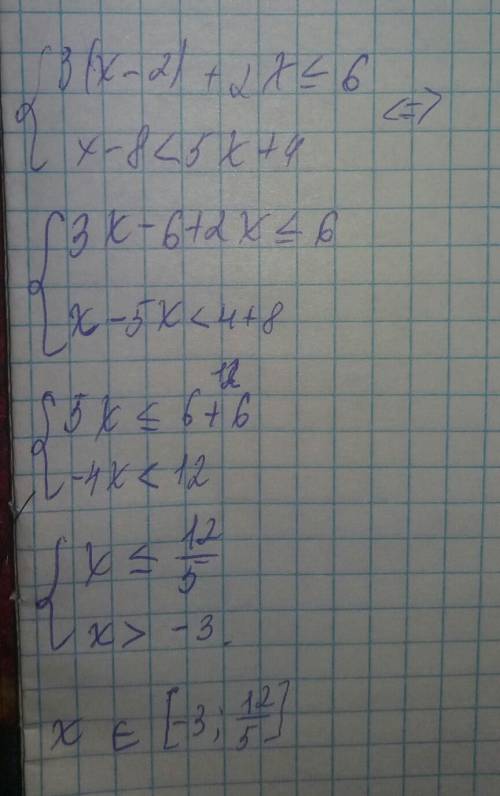 3(x-2) + 2x ≤ 6
<=>
x-8<5x+4
3x-6+2x≤6
x-5x<4+8
12
5x ≤ 6+6
-4x<12
x ≤ 12/5
x> -3.
x ∈ [-3; 12/5]